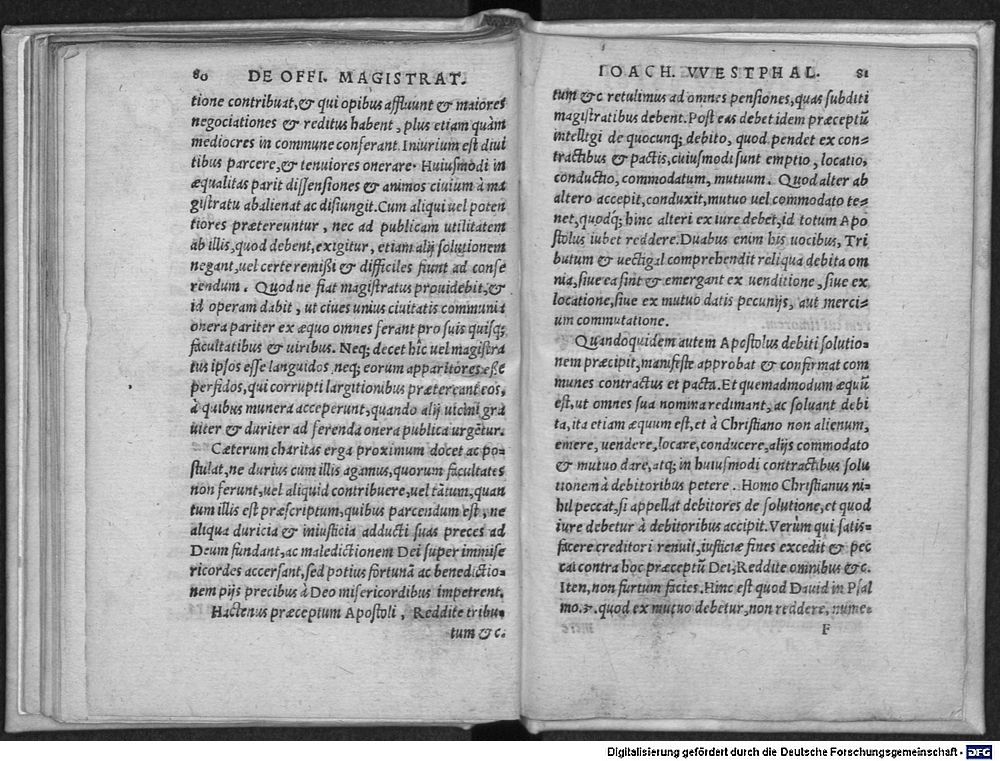 80 DE OFFI. MAGISTRAT.
tione contribuat, & qui opibus affluunt & maiores
negociationes & reditus habent, plus etiam quàm
mediocres in commune conferant. Iniurium est diui
tibus parcere, & tenuiores onerare. Huiusmodi in
æqualitas parit dissensiones & animos ciuium à ma
gistratu abalienat ac disiungit. Cum aliqui uel poten
tiores prætereuntur, nec ad publicam utilitatem
ab illis, quod debent, exigitur, etiam alij solutionem
negant, uel certe remißi & difficiles fiunt ad confe
rendum. Quod ne fiat magistratus prouidebit, &
id operam dabit, ut ciues unius ciuitatis communia
onera pariter ex æquo omnes ferant pro suis quisq;
facultatibus & uiribus. Neq; decet hîc uel magistra
tus ipsos esse languidos, neq; eorum apparitores eße
perfidos, qui corrupti largitionibus prætereant eos,
à quibus munera acceperunt, quando alij uicini gra
uiter & duriter ad ferenda onera publica urgētur.
Cæterum charitas erga proximum docet ac po-
stulat, ne durius cum illis agamus, quorum facultates
non ferunt, uel aliquid contribuere, uel tātum, quan
tum illis est præscriptum, quibus parcendum est, ne
aliqua duricia & iniusticia adducti suas preces ad
Deum fundant, ac maledictionem Dei super immise
ricordes accersant, sed potius fortunā ac benedictio-
nem pijs precibus à Deo misericordibus impetrent.
Hactenus præceptum Apostoli, Reddite tribu-
tum &c.
IOACH. VVESTPHAL. 81
tum &c retulimus ad omnes pensiones, quas subditi
magistratibus debent. Post eas debet idem præceptū
intelligi de quocunq; debito, quod pendet ex con-
tractibus & pactis, cuiusmodi sunt emptio, locatio,
conductio, commodatum, mutuum. Quod alter ab
altero accepit, conduxit, mutuo uel commodato te-
net, quodq; hinc alteri ex iure debet, id totum Apo
stolus iubet reddere. Duabus enim his uocibus, Tri
butum & uectigal comprehendit reliqua debita om
nia, siue ea sint & emergant ex uenditione, siue ex
locatione, siue ex mutuo datis pecunijs, aut merci-
um commutatione.
Quandoquidem autem Apostolus debiti solutio-
nem præcipit, manifeste approbat & confirmat com
munes contractus et pacta. Et quemadmodum æquū
est, ut omnes sua nomina redimant, ac soluant debi
ta, ita etiam æquum est, et à Christiano non alienum,
emere, uendere, locare, conducere, alijs commodato
& mutuo dare, atq; in huiusmodi contractibus solu
tionem à debitoribus petere. Homo Christianus ni-
hil peccat, si appellat debitores de solutione, et quod
iure debetur à debitoribus accipit. Verùm qui satis-
facere creditori renuit, iusticiæ fines excedit & pec
cat contra hoc præceptū Dei, Reddite omnibus &c.
Iten, non furtum facies. Hinc est quod Dauid in Psal
mo. quod ex mutuo debetur, non reddere, nume-
F
Digitalisierung gefördert durch die Deutsche Forschungsgemeinschaft - DFG